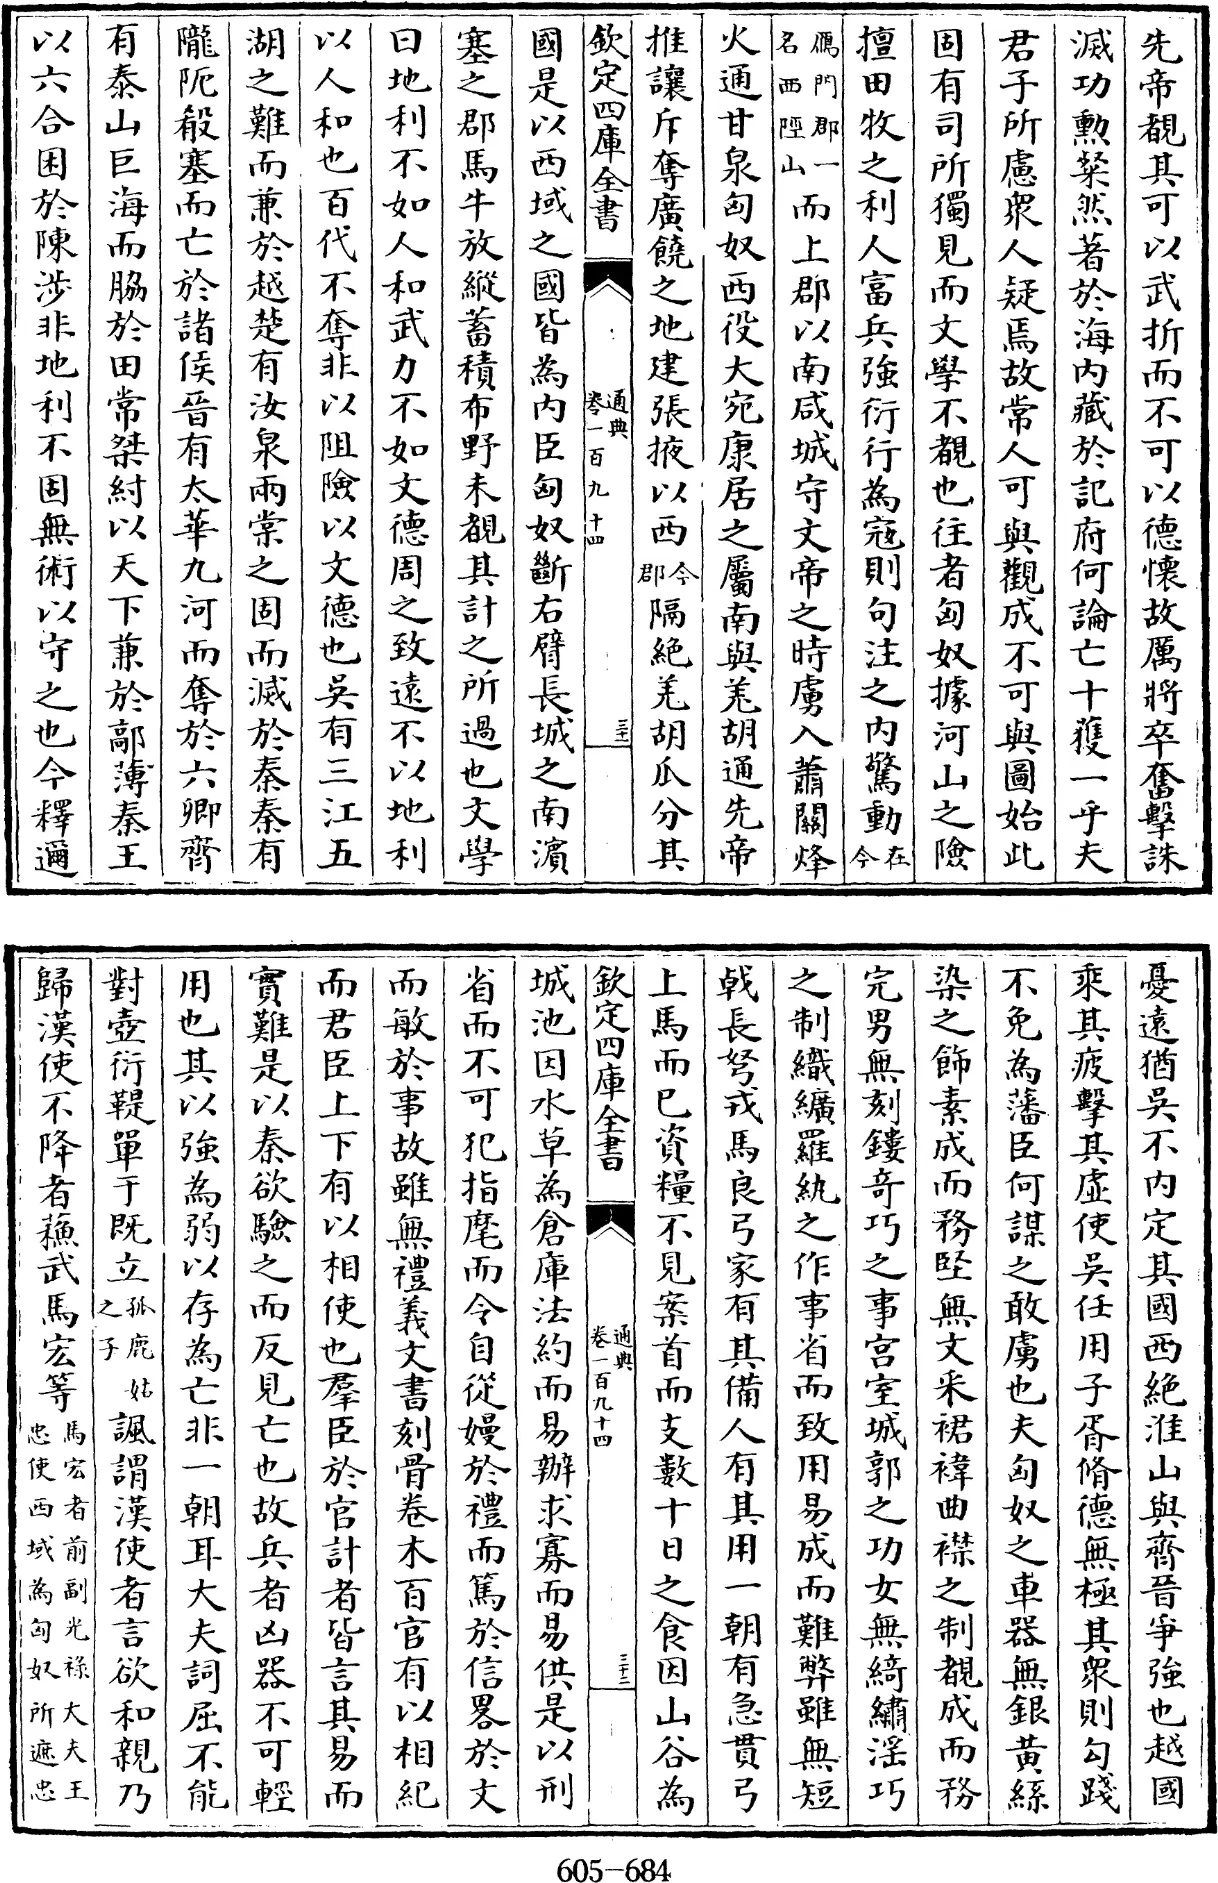 先帝覩其可以武折而不可以德懷故厲將卒奮擊誅
滅功勲粲然著於海内藏於記府何論亡十獲一乎夫
君子所慮衆人疑焉故常人可與觀成不可與圖始此
固有司所獨見而文學不覩也往者匈奴據河山之險
擅田牧之利人富兵強衍行為寇則句注之内驚動今在
鴈門郡一名西陘山而上郡以南咸城守文帝之時虜入蕭關烽
火通甘泉匈奴西役大宛康居之屬南與羌胡通先帝
推讓斥奪廣饒之地建張掖以西今郡隔絶羌胡瓜分其
欽定四庫全書
通典
卷一百九十四
三十二
國是以西域之國皆為内臣匈奴斷右臂長城之南濱
塞之郡馬牛放縱蓄積布野未覩其計之所過也文學
曰地利不如人和武力不如文德周之致遠不以地利
以人和也百代不奪非以阻險以文德也吳有三江五
湖之難而兼於越楚有汝泉兩棠之固而滅於秦秦有
隴阨殽塞而亡於諸侯晉有太華九河而奪於六卿齊
有泰山巨海而脇於田常桀紂以天下兼於鄗薄秦王
以六合困於陳涉非地利不固無術以守之也今釋邇
憂遠猶吳不内定其國西絶淮山與齊晉爭強也越國
乘其疲擊其虛使吳任用子胥脩德無極其衆則勾踐
不免為藩臣何謀之敢虜也夫匈奴之車器無銀黄絲
染之飾素成而務堅無文采裙褘曲襟之制覩成而務
完男無刻鏤奇巧之事宫室城郭之功女無綺繡淫巧
之制織纊羅紈之作事省而致用易成而難弊雖無短
戟長弩戎馬良弓家有其備人有其用一朝有急貫弓
上馬而已資糧不見案首而支數十日之食因山谷為
欽定四庫全書
通典
卷一百九十四
三十三
城池因水草為倉庫法約而易辦求寡而易供是以刑
省而不可犯指麾而令自從嫚於禮而篤於信畧於文
而敏於事故雖無禮義文書刻骨卷木百官有以相紀
而君臣上下有以相使也羣臣於官計者皆言其易而
實難是以秦欲驗之而反見亡也故兵者凶器不可輕
用也其以強為弱以存為亡非一朝耳大夫詞屈不能
對壺衍鞮單于既立孤鹿姑之子諷謂漢使者言欲和親乃
歸漢使不降者蘓武馬宏等馬宏者前副光祿大夫王忠使西域為匈奴所遮忠
605-684